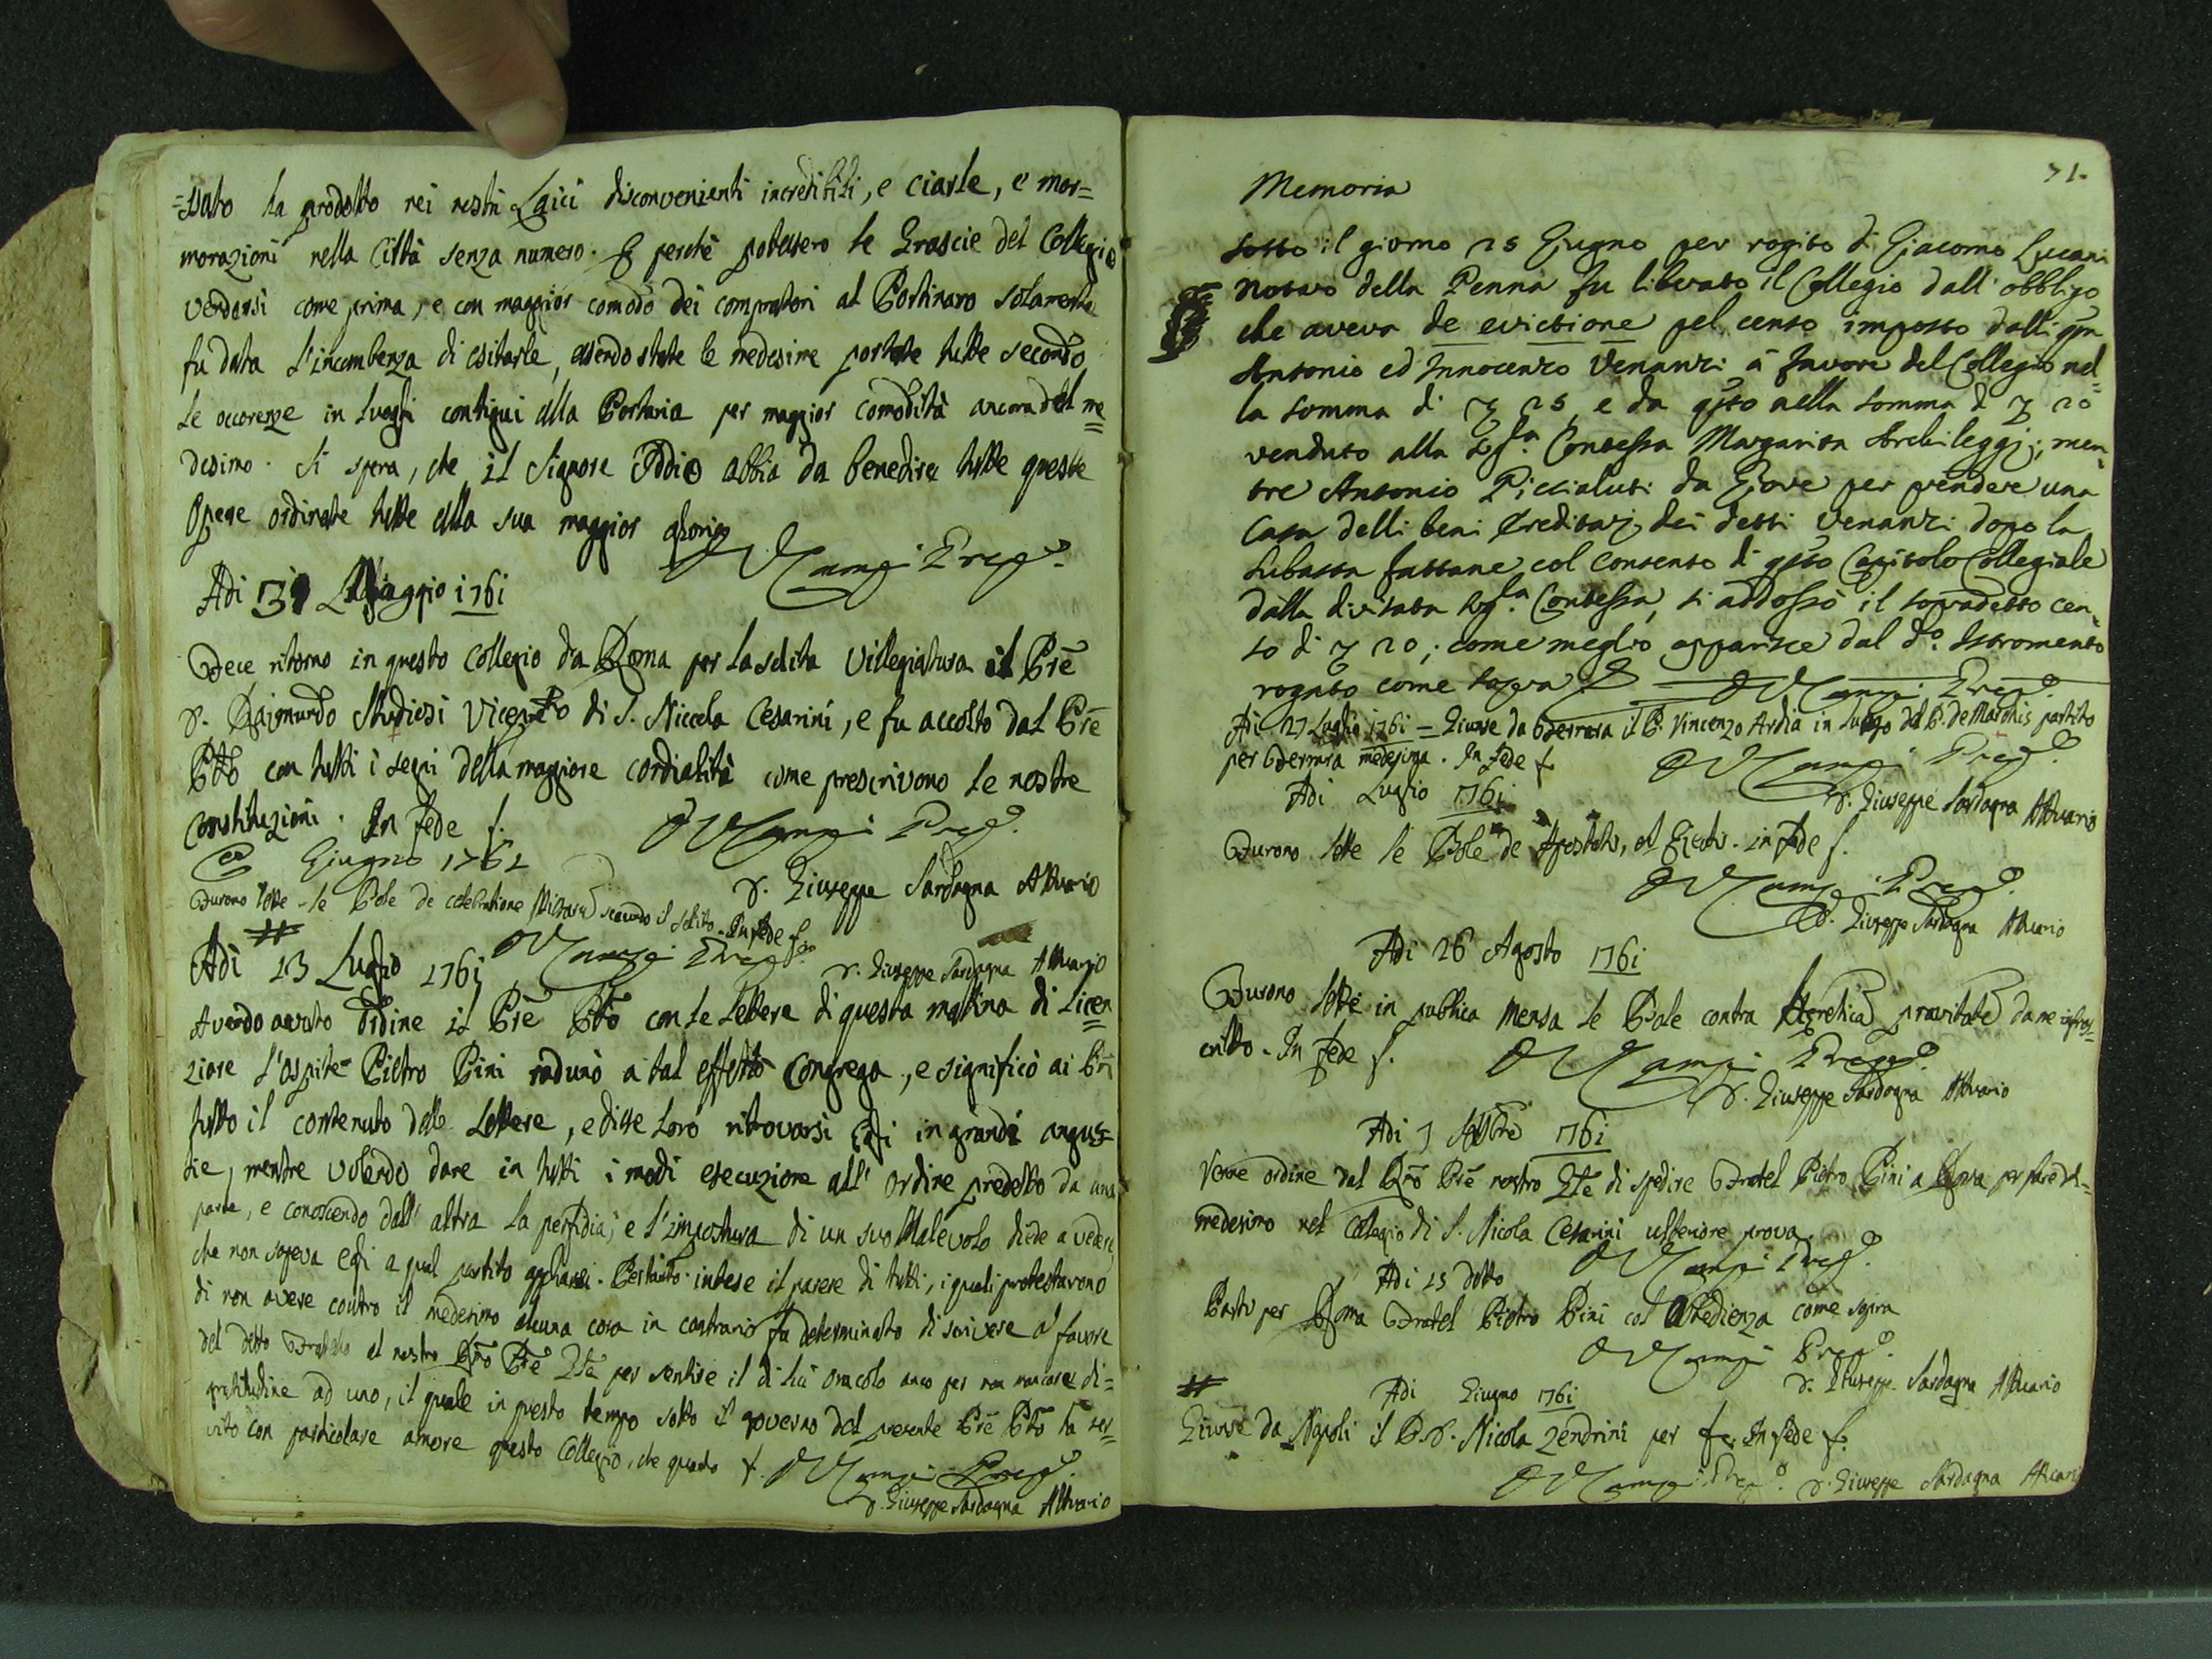 =ssato ha prodotto nei nostri Laici disconvenienti incredibili, e ciarle, e mor=
morazioni nella Città senza numero. E perchè potessero le Grascie del Collegio
vendersi come prima, e con maggior comodo dei compratori al Portinaro solamente
fu data l'incombenza di esitarle, essendo state le medesime portate tutte secondo
le occorenze in luoghi contigui alla Portaria per maggior comodità ancora del me=
desimo. Si spera, che il Signore Iddio abbia da benedire tutte queste
Opere ordinate tutte alla sua maggior gloria
Prep.o
Adi 31 Maggio 1761
Fece ritorno in questo Collegio da Roma per la solita Villegiatura il Prẽ
D. Raimondo Studiosi Vicepto di S. Niccola Cesarini, e fu accolto dal Prẽ
Ptto con tutti i segni della maggiore cordialità come prescrivono le nostre
Constituzioni. In fede f.
Prep.o
Giugno 1761
D. Giuseppe Sardagna Attuario
Furono lette le Bole de celebratione Missarũ secondo il solito. In fede f.
Prep.o
Adi 13 Luglio 1761
D. Giuseppe Sardagna Attuario
Avendo avuto ordine il Prẽ Ptto con le lettere di questa mattina di licen=
ziare l'ospite Pietro Pini radunò a tal effetto Congrega, e significò ai Pri
tutto il contenuto delle Lettere, e disse loro ritrovarsi Egli in grandi angus=
tie, mentre volendo dare in tutti i modi esecuzione all' ordine predetto da una
parte, e conoscendo dall' altra la perfidia, e l'impostura di un suo Malevolo diede a vedere,
che non sapeva egli a qual partito appliarsi. Pertanto intese il parere di tutti, i quali protestarono
di non avere contro il medesimo alcuna cosa in contrario fu determinato di scrivere a favore
del detto Fratello al nostro Rmo Prẽ Gle per sentire il di lui oracolo anco per non mancare di
gratitudine ad uno, il quale in questo tempo sotto il governo del presente Prẽ Ptto ha ser=
vito con particolare amore questo Collegio, che quando f.
Prep.o
D. Giuseppe Sardagna Attuario
71.
Memoria
Sotto il giorno 25 Giugno per rogito di Giacomo Lucani
Notaro della Penna fu liberato il Collegio dall' obbligo
che aveva de evictione pel censo imposto dalli qm
Antonio ed Innocenzo Venanzi à favore del Collegio nel=
la somma di 25, e da qsto nella somma d 20
venduto alla Sig.ra Contessa Margarita Archileggj; men=
tre Antonio Piccialuti da Giove per prendere una
Casa delli beni Ereditarj dei detti Venanzi dopo la
Subasta fattane col consenso di qsto Capitolo Collegiale
dalla divisata Sig.ra Contessa, si addossò il sopradetto cen=
so di 20; come meglio apparisce dal d.o Istromento
rogato come sopra
Prep.o
Adi 27 Luglio 1761 = Giunse da Ferrara il P. Vincenzo Ardia in luogo del P. de Marchis partito
per Ferrara medesima. In fede f.
Prep.o
D. Giuseppe Sardagna Attuario
Adi Luglio 1761
Furono lette le Bole de Apostatis, et Ejectis. in fede f.
Prep.o
D. Giuseppe Sardagna Attuario
Adi 26 Agosto 1761
Furono lette in publica mensa le Bole contra Hæreticã pravitatẽ da me infras=
critto. In fede f.
Prep.o
D. Giuseppe Sardagna Attuario
Adi 7 Settbre 1761
Venne ordine dal Rmo Prẽ nostro Gle di spedire Fratel Pietro Pini a Roma per fare del
medesimo nel Collegio di S. Nicola Cesarini ulteriore prova
Prep.o
Adi 15 detto
Partì per Roma Fratel Pietro Pini col Obbedienza come sopra
Prep.o
D. Giuseppe Sardagna Attuario
Adi Giugno 1761
Giunse da Napoli il P. D. Nicola Zendrini per In fede f.
Prep.o D. Giuseppe Sardagna Attuario